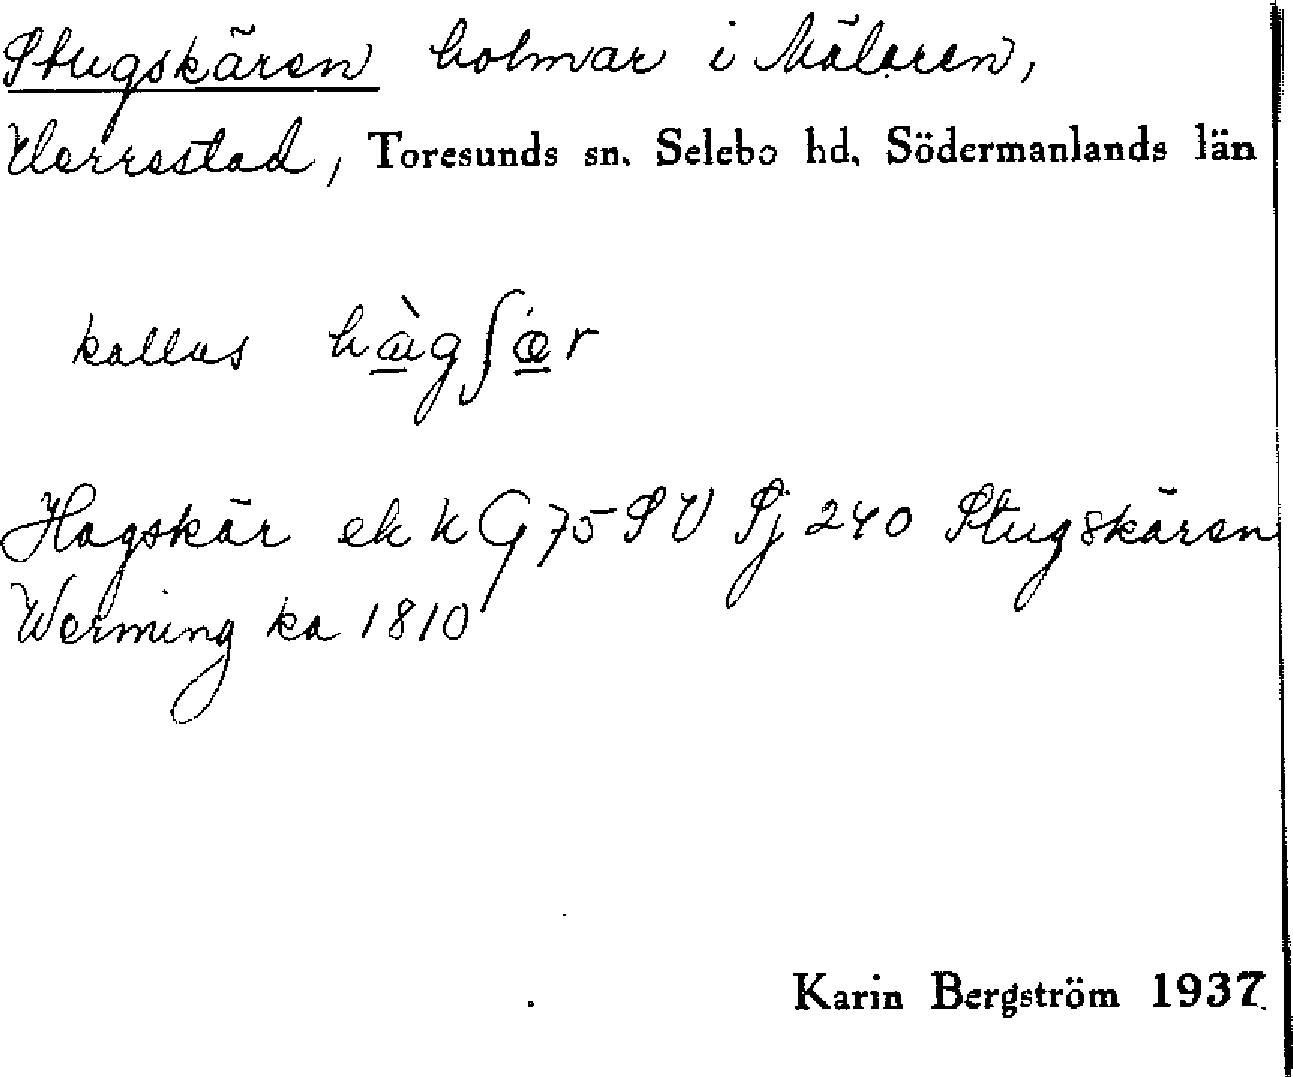 Stugskären holmar i Mälaren,
Verrestad, Toresunds sn. Selebo hd. Södermanlands län
kallas hàgʃæ̀r
Hagskär ek k G 75 S V Sj 240 Stugskären
Werming ka 1810
Karin Bergström 1937